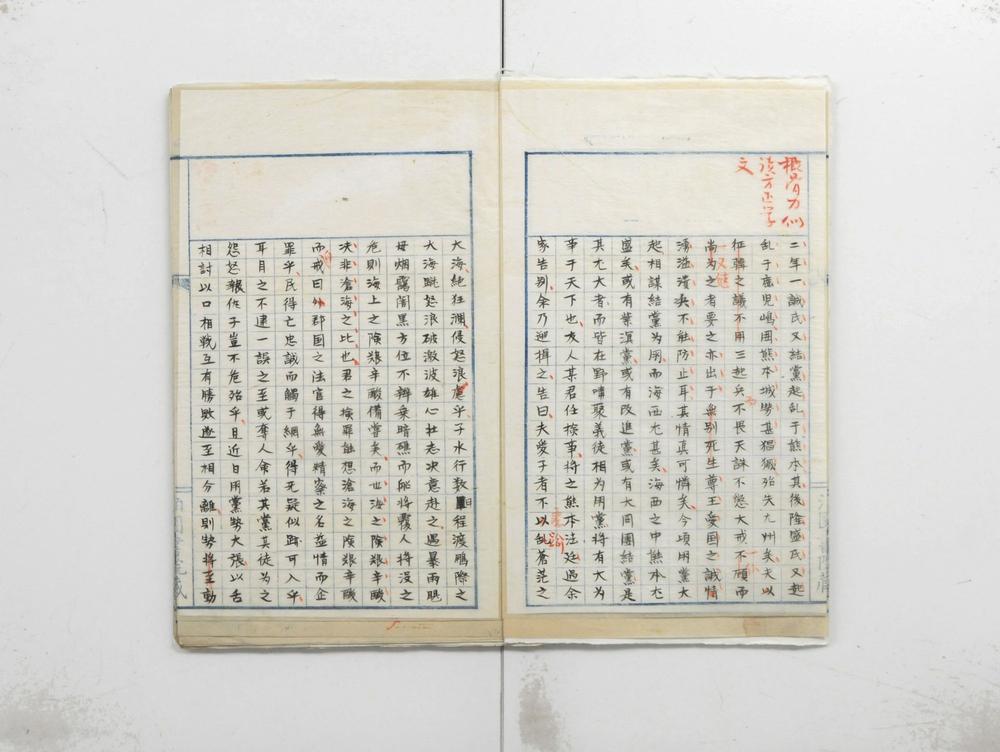 二年一誠氏又結黨起乱于熊本其後隆盛氏又起
乱于鹿児嶋囲熊本城勢甚猖獗殆失九州矣夫以
征韓之議不用三起兵不畏天誅不懲大戒不顧而
尚為之者要之亦出于無別死生尊王愛国之誠情
湧溢漬決不能防止耳其情真可憐矣今頃用黨大
起相謀結黨為用而海西尤甚矣海西之中熊本尤
盛矣或有紫溟黨或有改進黨或有大同團結黨是
其尤大者而皆在野嘯聚義徒相為用黨将有大為
事于天下也友人某君任検事将之熊本法廷過余
家告別余乃迎揖之告曰夫愛子者不以乱蒼茫之
大海絶狂瀾侵怒浪乎子水行数日程渡鵬際之
大海眺怒浪破激波雄心壮志决意赴之遇暴雨颶
母烟靄闇黒方位不辨乗暗礁而船将覆人将没之
危則海上之険艱辛酸備嘗矣而世海之険艱辛酸
决非滄海之比也君之検罪能想滄海之険艱辛酸
而戒曰外郡国之法官得無愛精察之名益情而企
罪乎民得亡忠誠而觸于綱乎得无疑似跡可入乎
耳目之不逮一誤之至或奪人命若其黨其徒為之
怨怒報作子豈不危殆乎且近日用黨勢大張以舌
相討以口相戦互有勝敗遂至相分離則勢将至動
文